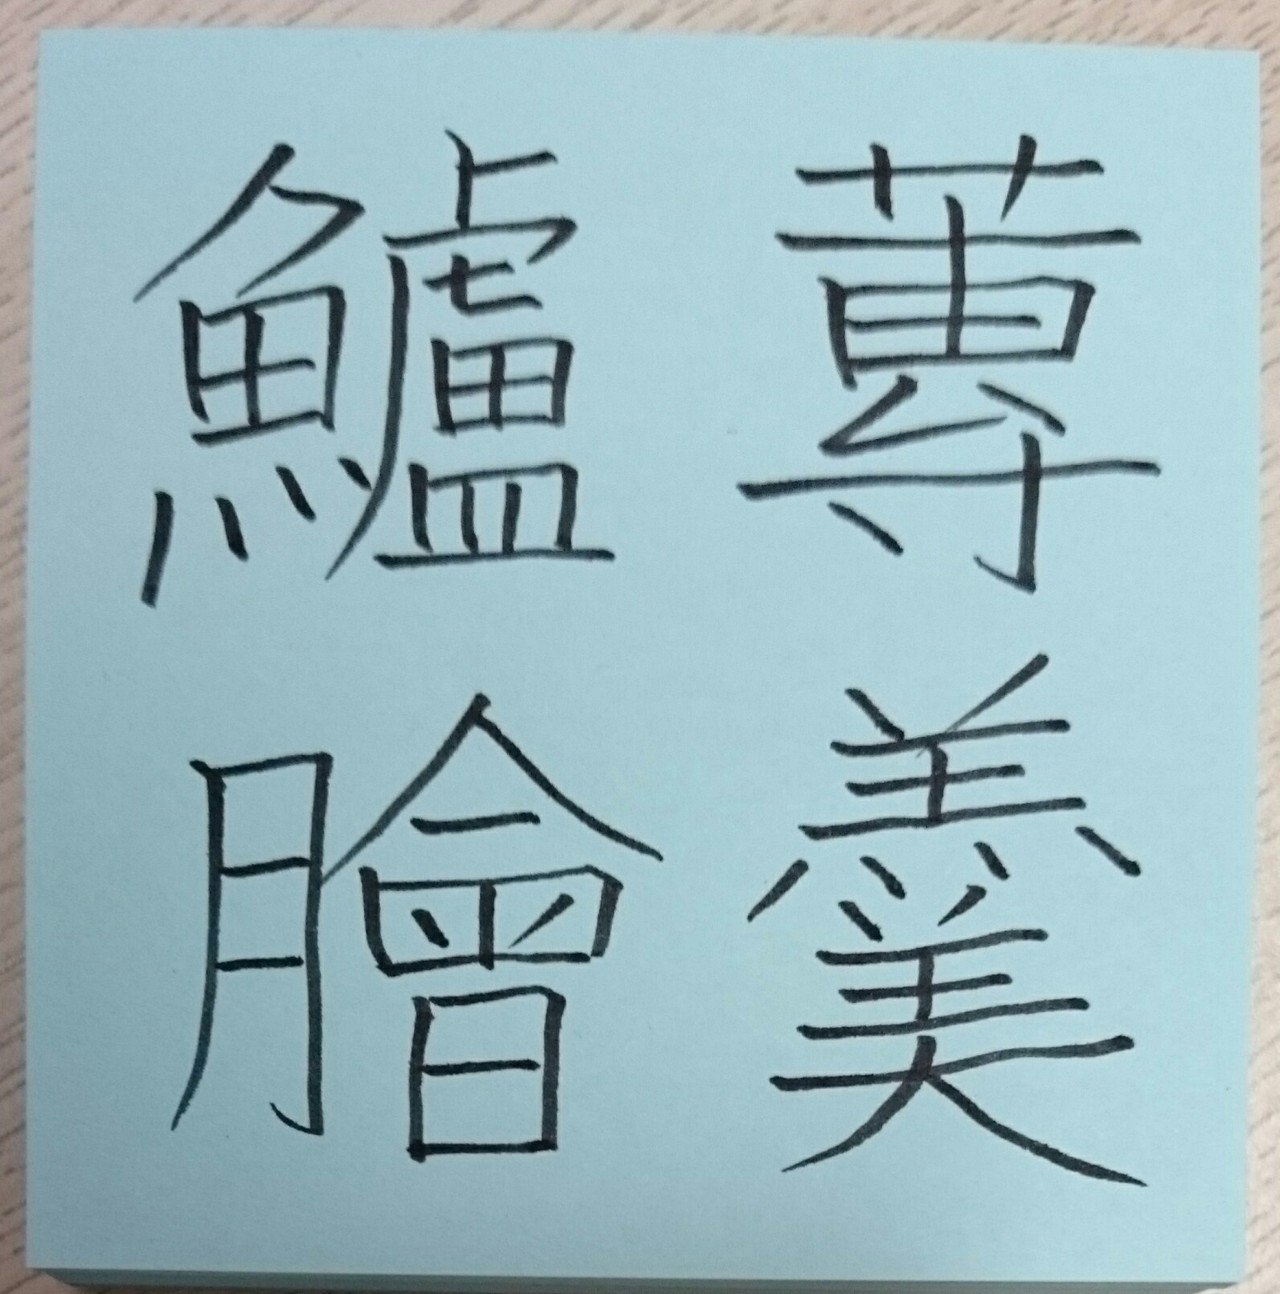 蓴羹
鱸膾